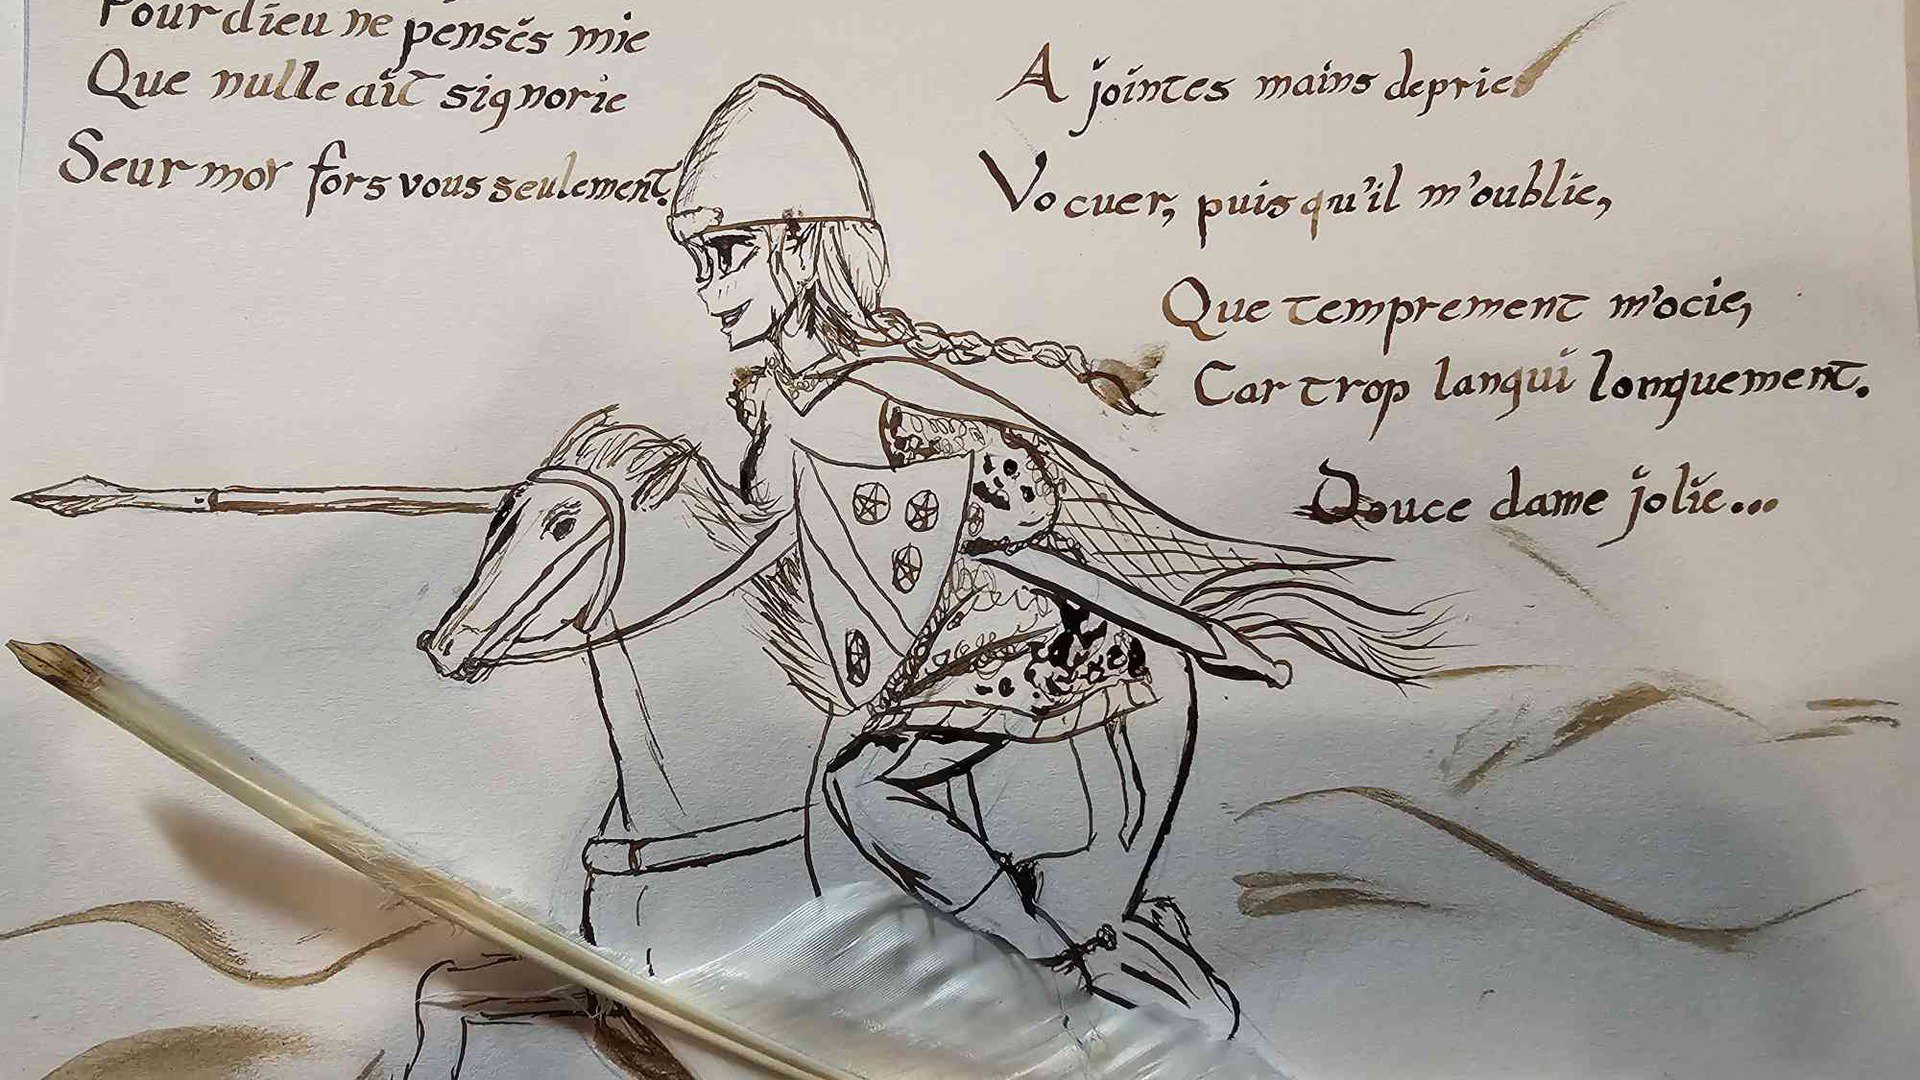 Pour dieu ne pensés mie
Que nulle ait signorie
Seur moy fors vous seulement.
A jointes mains deprie
Vo cuer, puis qu'il m'oublie,
Que temprement m'ocie,
Car trop langui longuement.
Douce dame jolie...